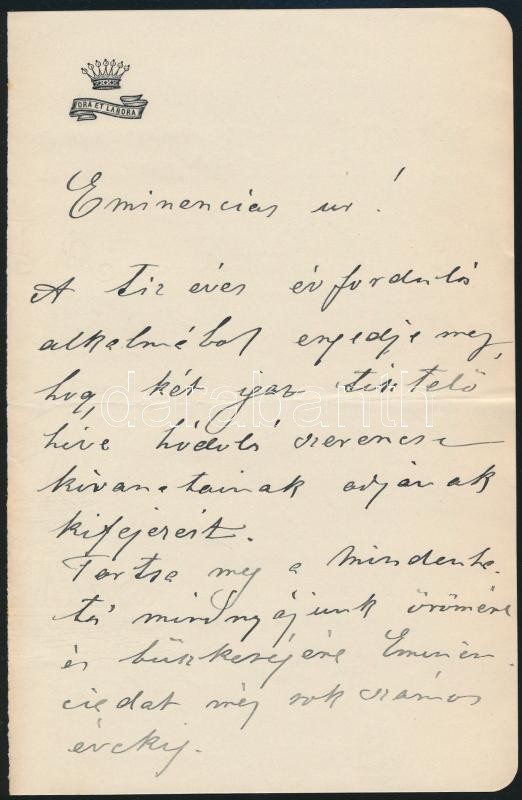 ORA ET LABORA
Eminencias ur!
A tiz éves évforduló
alkalmából engedje meg,
hogy két igaz tisztelő
hive hódoló szerencse
kivánatainak adjanak
kifejezést.
Tartsa meg a Mindenha-
tó mindnyájunk örömére
és büszkeségére Eminen-
ciádat még sok számos
évekig.
darabanth